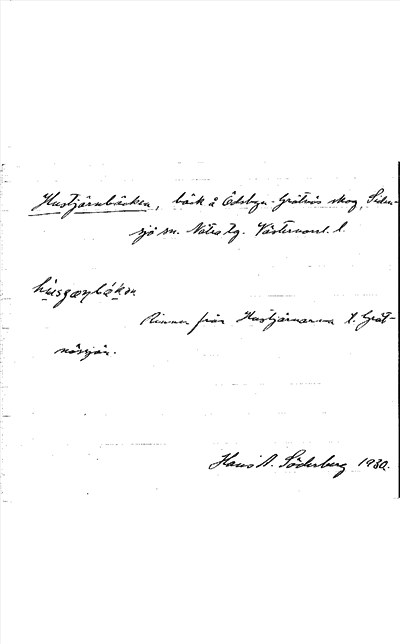 Hustjärnbäcken, bäck å Ödsbyn-Grötnäs skog, Siden-
sjö sn. Nätra tg. Västernorrl. l.
Rinner från Hustjärnarna t. Gröt-
nässjön.
Hans A. Söderberg 1930.